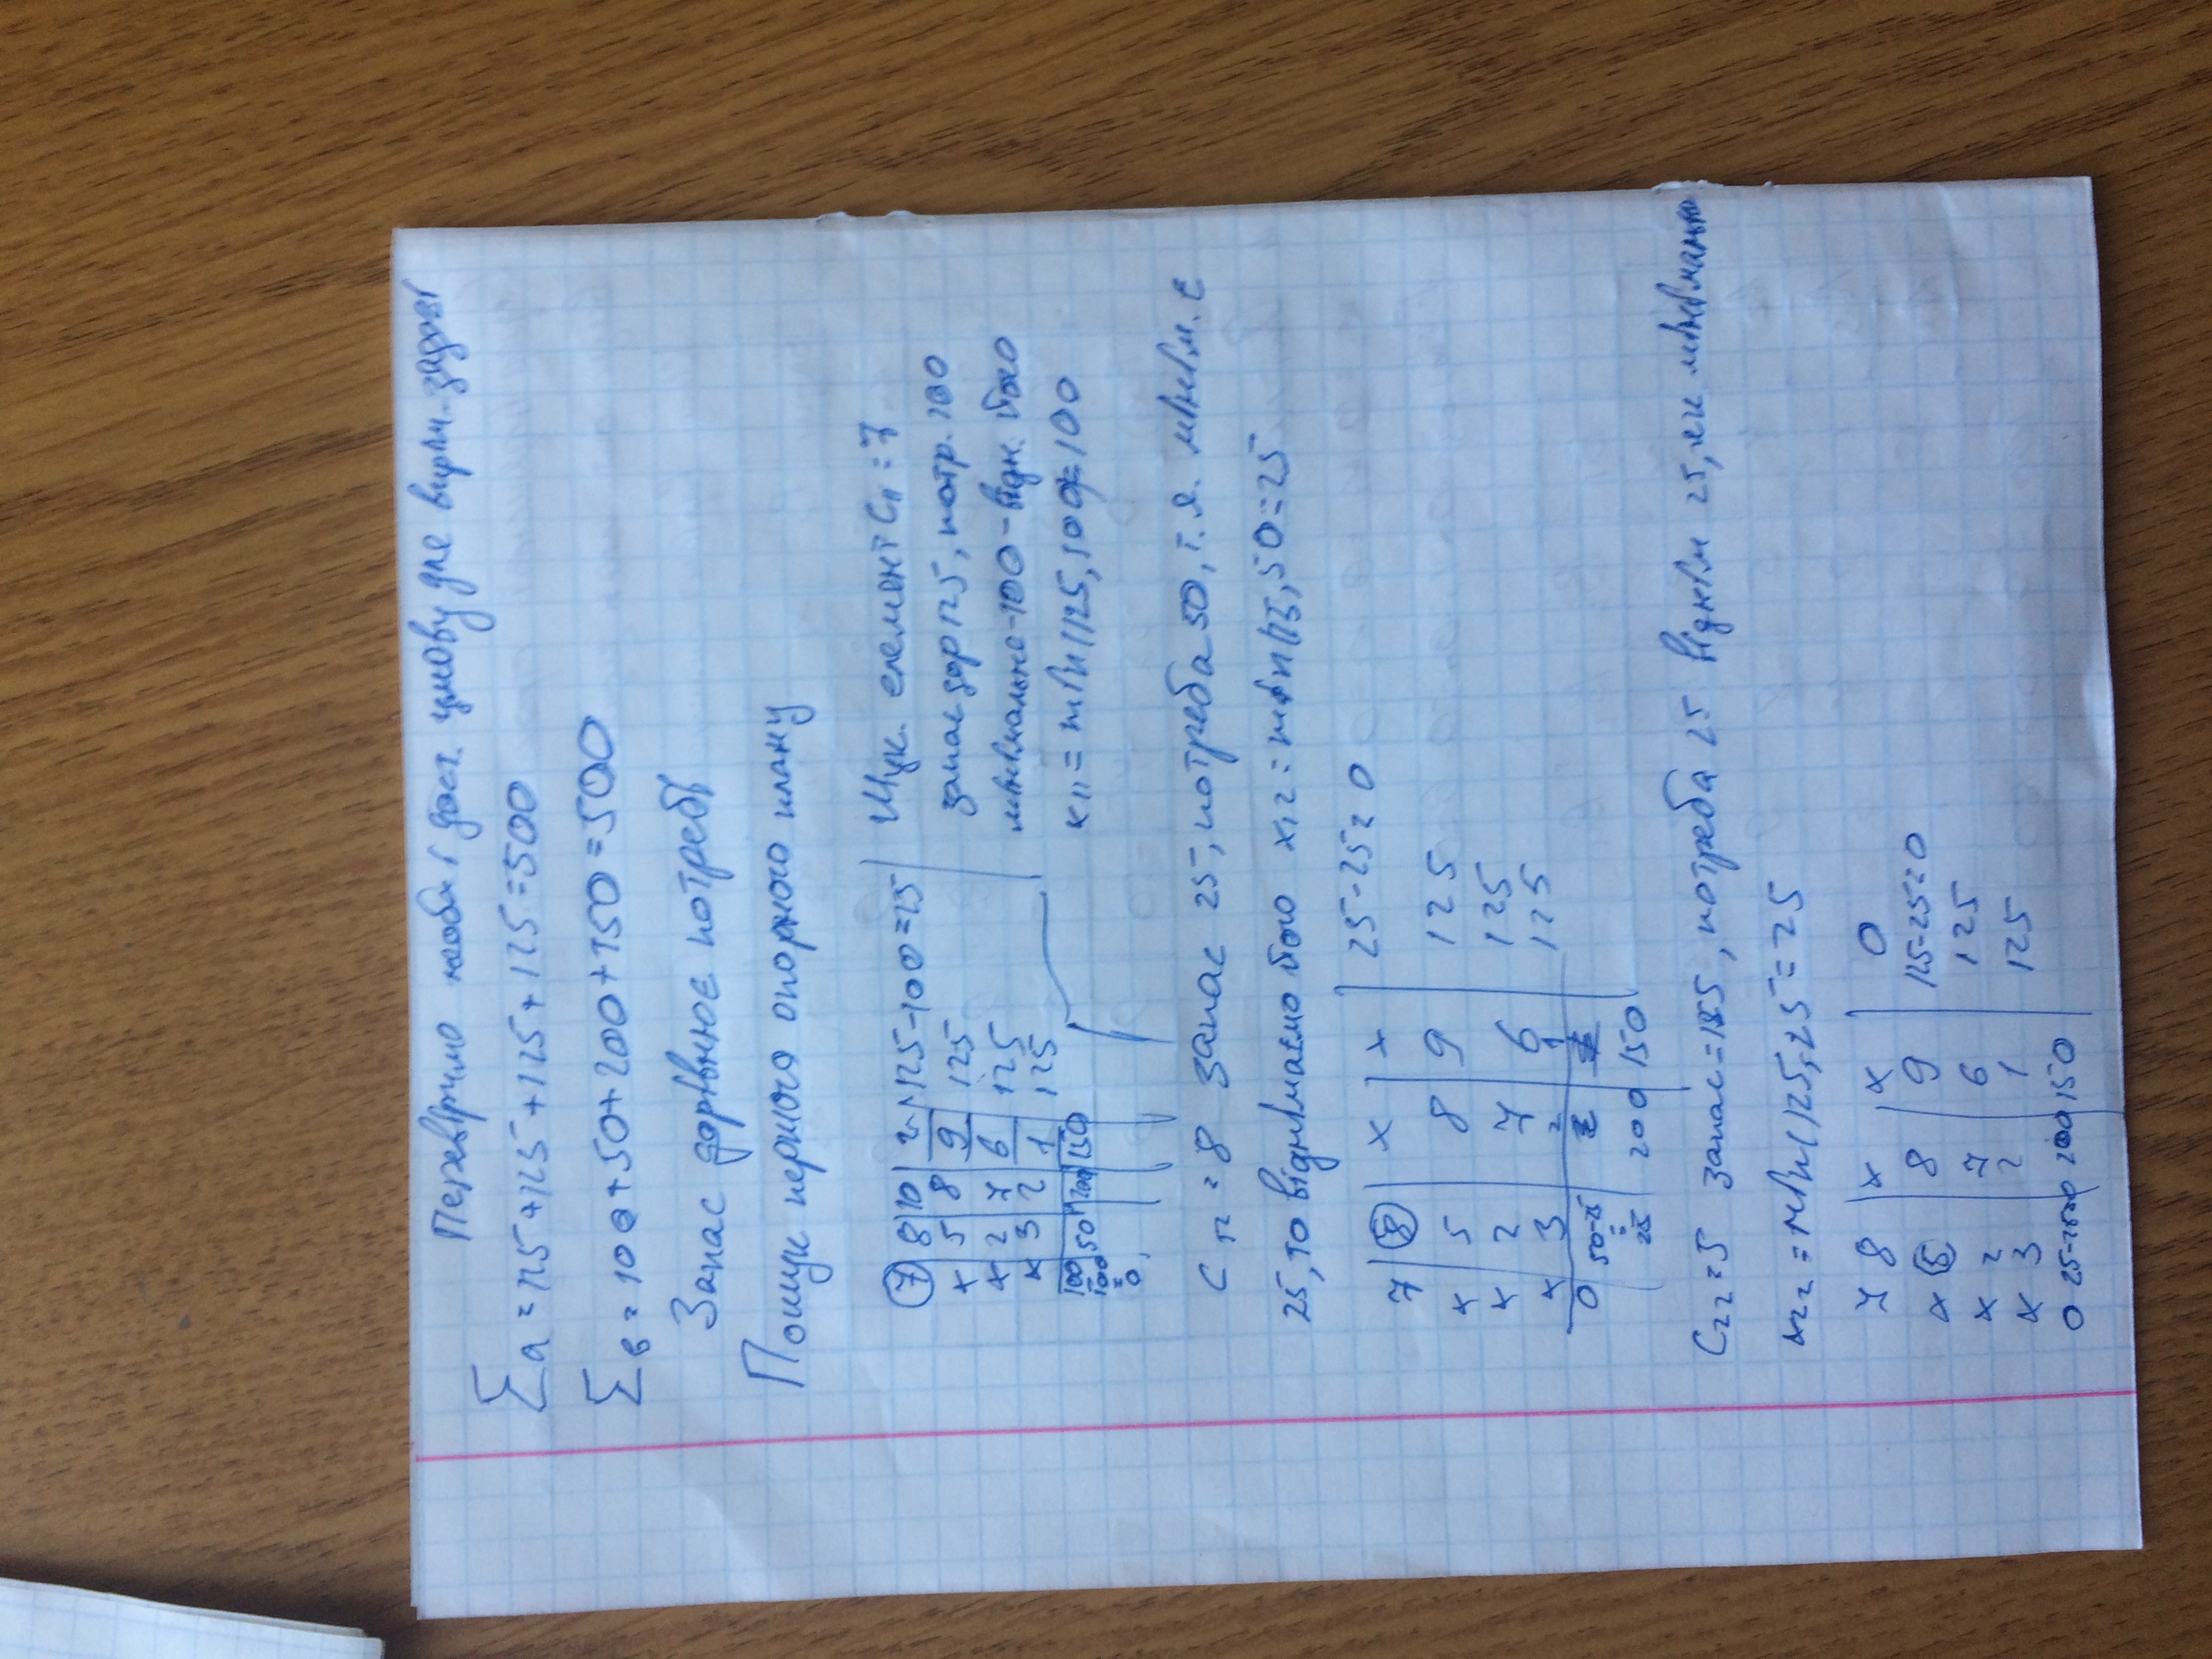 Перевіримо необх і дост. умову для виріш. задачі
Σa = 125+125+125+125=500
Σв = 100+50+200+150=500
Запас дорівнює потребі
Пошук першого опорного плану
7 8 10 2 125-100=25
x 5 8 9 125
x 2 7 6 125
x 3 2 1 125
100 50 200 150
100
=
0
Шук. елемент C11 = 7
запас дор 125, потр. 100
мінімальне-100-відн. його
x11 = min(125,100)=100
C12 = 8 запас 25, потреба 50, т.я. мінім. є
25, то віднімаємо його x12 = min(25,50=25
7 8 x x 25-25=0
x 5 8 9 125
x 2 7 6 125
x 3 2 1 125
0 50-25
=
25 200 150
C22=5 запас=125, потреба 25 віднім 25, як мінімальне
x22 = min(125,25=25
7 8 x x 0
x 5 8 9 125-25=0
x 2 7 6 125
x 3 2 1 125
0 25-25=0 200 150